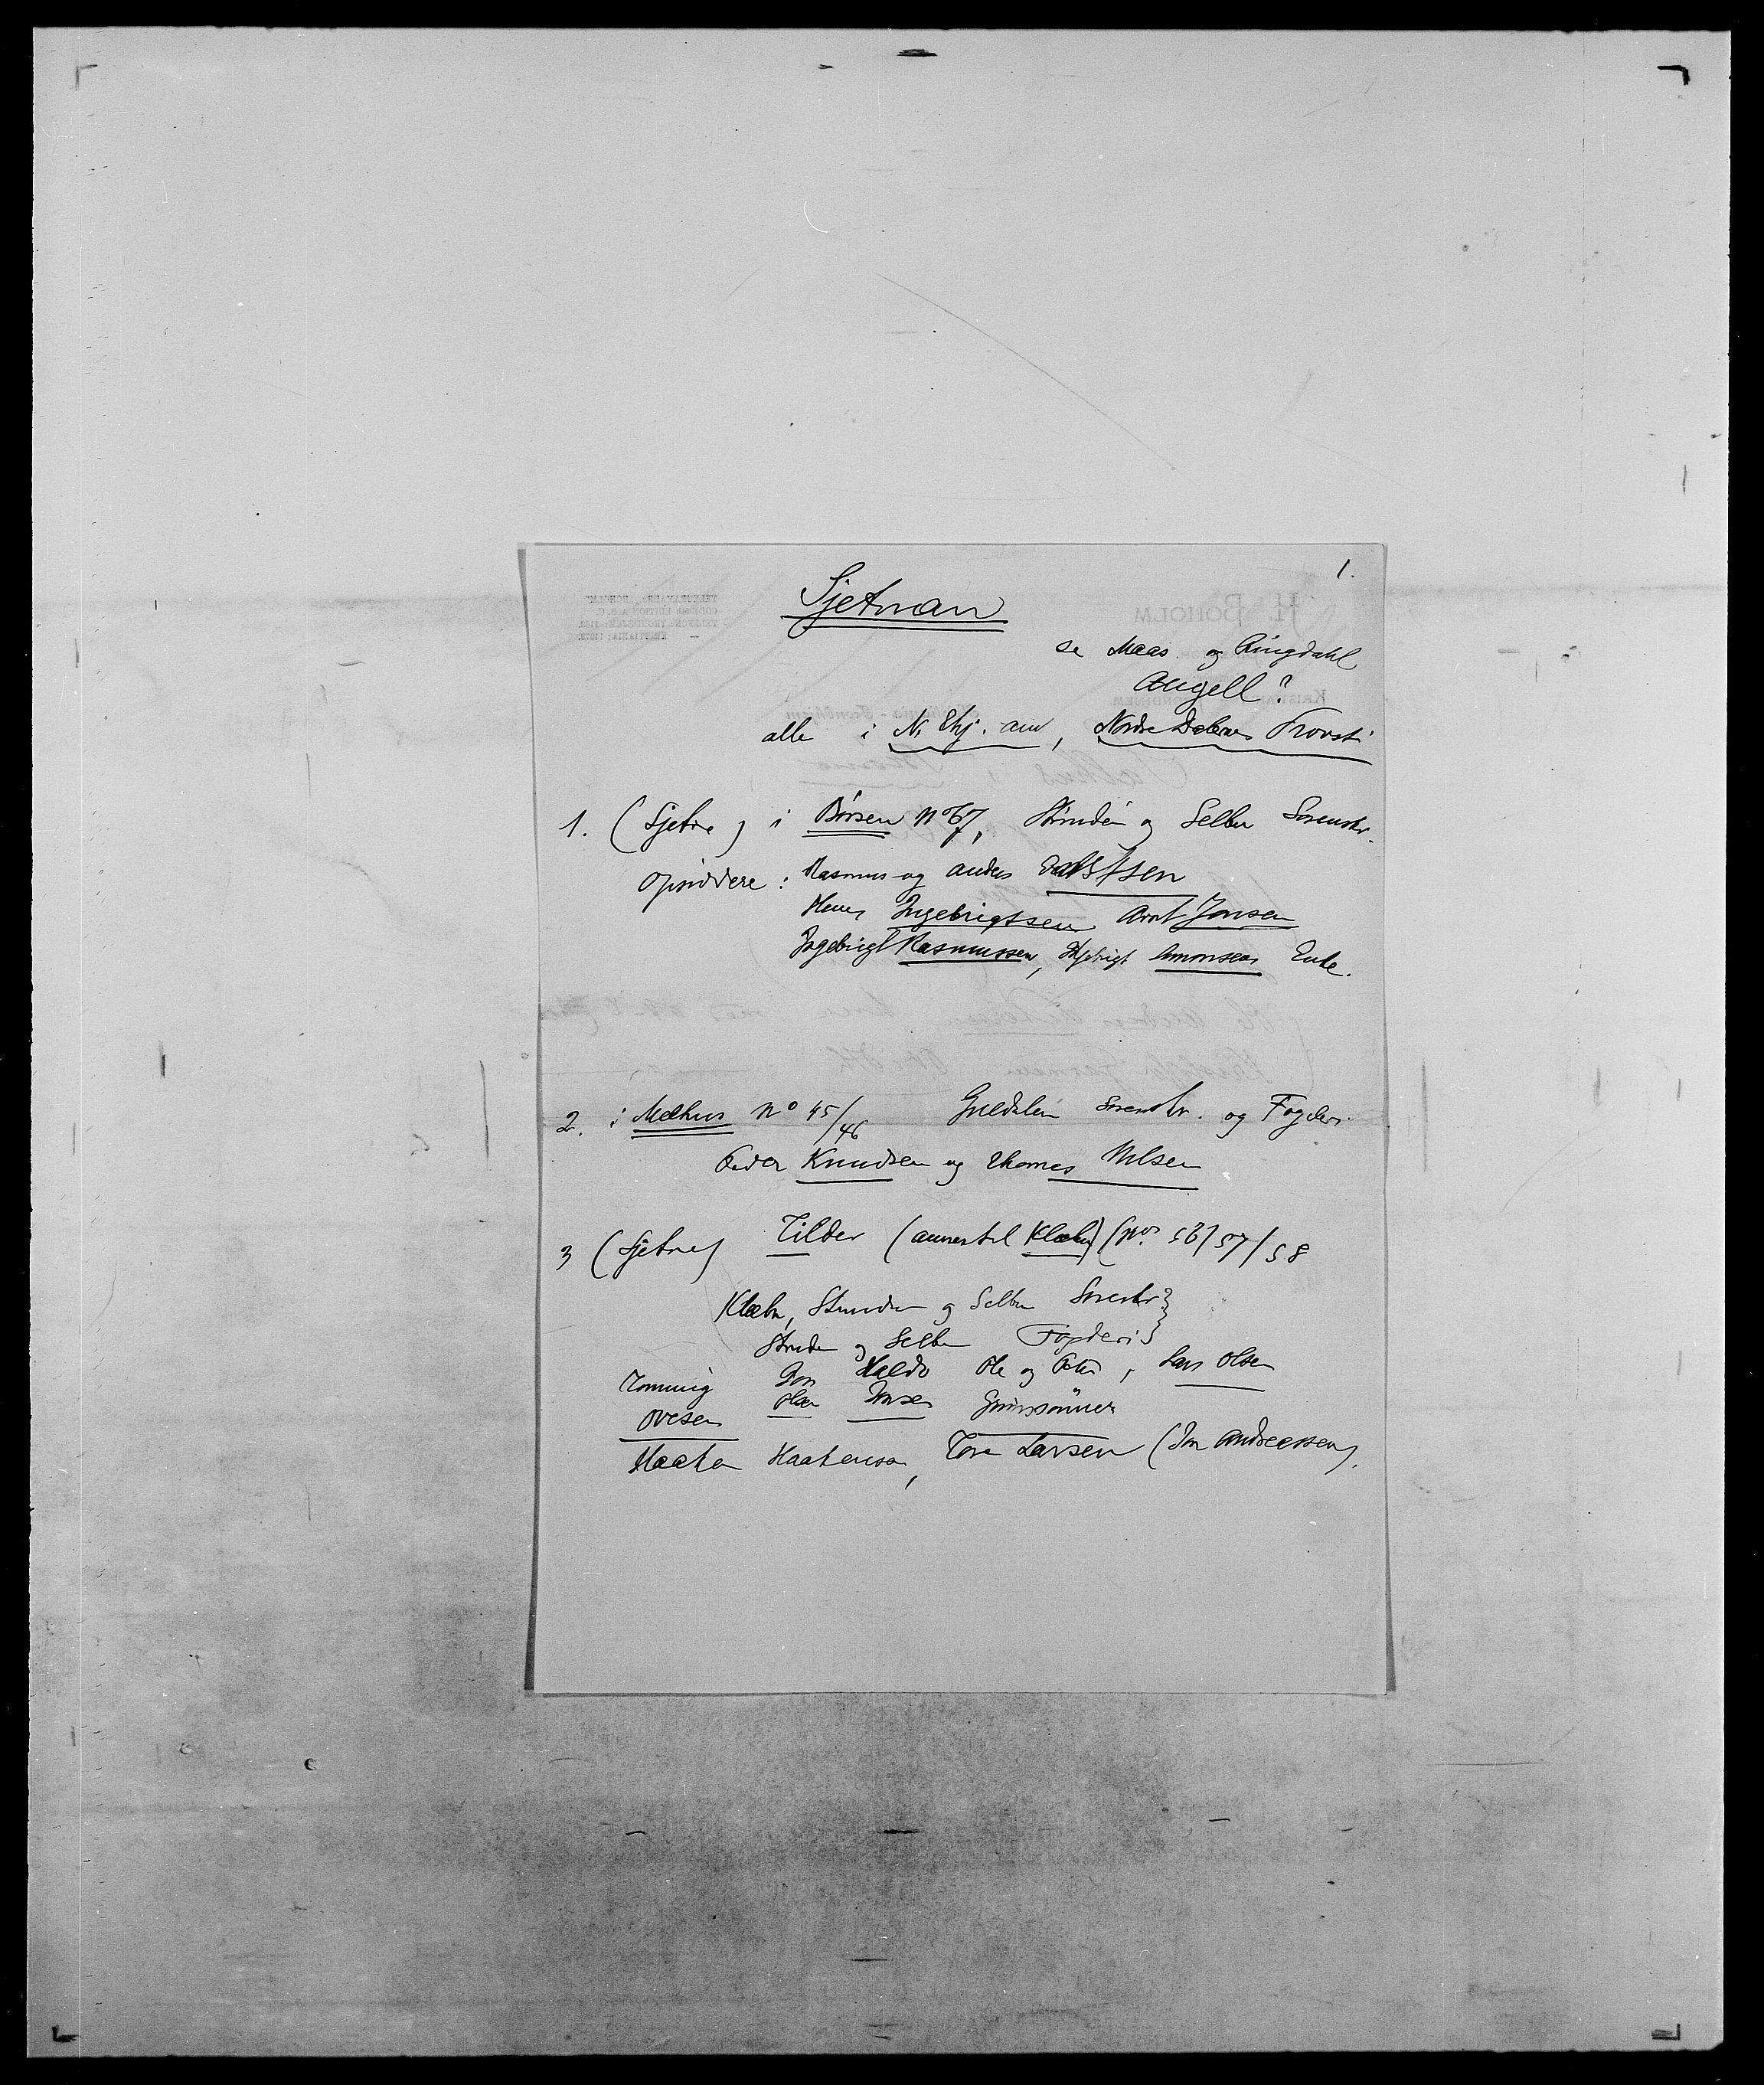 1.
Sjetnan
se Maas og Ringdahl
Angell?
alle i N. Thj. amt, Nordre Dalernes Provsti
1. (Sjetne) i Børsen No 67, Strinden og Selbu Sorenskr.
Opsiddere: Rasmus og Anders
Hans Ingebrigtsen Arnt Jonsen
Ingebrigt Rasmussen, Ingebrigt Amonsens Enke.
2. i Melhus No 45/46 Guldalen Sorenskr. og Fogderi.
Peder Knudsen og Thomas Nilsen
3 (Sjetne) Tilder (annex til Klæbu) (No. 56/57/58
Klæbu, Strinden og Selbu Sorenskr }
Strinden og Selbu Fogderi }
Jon Haldo Ole og Peter, Lars Olsen
Ovesen Olsen Jonsen
Haaken Haakenson, Tore Larsen (Jon Andreassen).
H. BOHOLM